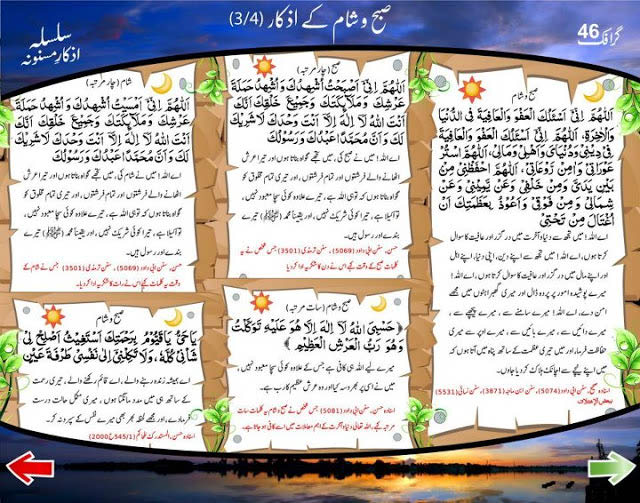 گرافک 46
صبح و شام کے اذکار (3/4)
سلسلہ
اذکارِ مسنونہ
صبح و شام
اَللّٰهُمَّ اِنِّیْ اَسْئَلُكَ الْعَفْوَ وَالْعَافِيَةَ فِی الدُّنْيَا
وَالْاٰخِرَةِ، اَللّٰهُمَّ اِنِّیْ اَسْئَلُكَ الْعَفْوَ وَالْعَافِيَةَ
فِیْ دِيْنِیْ وَدُنْيَایَ وَاَهْلِیْ وَمَالِیْ، اَللّٰهُمَّ اسْتُرْ
عَوْرَاتِیْ وَاٰمِنْ رَوْعَاتِیْ، اَللّٰهُمَّ احْفَظْنِیْ مِنْ
بَيْنِ يَدَیَّ وَمِنْ خَلْفِیْ وَعَنْ يَّمِيْنِیْ وَعَنْ
شِمَالِیْ وَمِنْ فَوْقِیْ وَاَعُوْذُ بِعَظَمَتِكَ اَنْ
اُغْتَالَ مِنْ تَحْتِیْ
اے اللہ! میں تجھ سے دنیا و آخرت میں درگزر اور عافیت کا سوال
کرتا ہوں، اے اللہ! میں تجھ سے اپنے دین، اپنی دنیا، اپنے اہل
اور اپنے مال میں درگزر اور عافیت کا سوال کرتا ہوں، اے اللہ!
میرے پوشیدہ امور پر پردہ ڈال اور میری گھبراہٹوں میں مجھے
امن دے، اے اللہ! میرے سامنے سے، میرے پیچھے سے،
میرے دائیں سے، میرے بائیں سے، میرے اوپر سے میری
حفاظت فرما، اور میں تیری عظمت کے ساتھ پناہ میں آتا ہوں کہ
میں اپنے نیچے سے اچانک ہلاک کر دیا جاؤں۔
اسنادہ صحیح، سنن ابی داود (5074)، سنن ابن ماجہ (3871)، سنن نسائی (5531)
صبح (چار مرتبہ)
اَللّٰهُمَّ اِنِّیْ اَصْبَحْتُ اُشْهِدُكَ وَاُشْهِدُ حَمَلَةَ
عَرْشِكَ وَمَلَآئِكَتَكَ وَجَمِيْعَ خَلْقِكَ اَنَّكَ
اَنْتَ اللّٰهُ لَآ اِلٰهَ اِلَّآ اَنْتَ وَحْدَكَ لَا شَرِيْكَ
لَكَ وَاَنَّ مُحَمَّدًا عَبْدُكَ وَرَسُوْلُكَ
اے اللہ! میں نے صبح کی، میں تجھے گواہ بناتا ہوں اور تیرا عرش
اٹھانے والے فرشتوں اور تمام فرشتوں، اور تیری تمام مخلوق کو
گواہ بناتا ہوں کہ تو ہی اللہ ہے، تیرے علاوہ کوئی سچا معبود نہیں،
تو اکیلا ہے، تیرا کوئی شریک نہیں، اور یقیناً محمد (ﷺ) تیرے
بندے اور رسول ہیں۔
حسن، سنن ابی داود (5069)، سنن ترمذی (3501) جس شخص نے یہ
کلمات صبح کے وقت کہے تو اس نے دن کا شکریہ ادا کر دیا۔
شام (چار مرتبہ)
اَللّٰهُمَّ اِنِّیْ اَمْسَيْتُ اُشْهِدُكَ وَاُشْهِدُ حَمَلَةَ
عَرْشِكَ وَمَلَآئِكَتَكَ وَجَمِيْعَ خَلْقِكَ اَنَّكَ
اَنْتَ اللّٰهُ لَآ اِلٰهَ اِلَّآ اَنْتَ وَحْدَكَ لَا شَرِيْكَ
لَكَ وَاَنَّ مُحَمَّدًا عَبْدُكَ وَرَسُوْلُكَ
اے اللہ! میں نے شام کی، میں تجھے گواہ بناتا ہوں اور تیرا عرش
اٹھانے والے فرشتوں اور تمام فرشتوں، اور تیری تمام مخلوق کو
گواہ بناتا ہوں کہ تو ہی اللہ ہے، تیرے علاوہ کوئی سچا معبود نہیں،
تو اکیلا ہے، تیرا کوئی شریک نہیں، اور یقیناً محمد (ﷺ) تیرے
بندے اور رسول ہیں۔
حسن، سنن ابی داود (5069)، سنن ترمذی (3501) جس نے شام کے
وقت یہ کلمات کہے تو اس نے رات کا شکریہ ادا کر دیا۔
صبح و شام (سات مرتبہ)
﴿حَسْبِیَ اللّٰهُ لَآ اِلٰهَ اِلَّا هُوَ عَلَيْهِ تَوَكَّلْتُ
وَهُوَ رَبُّ الْعَرْشِ الْعَظِيْمِ﴾
میرے لیے اللہ ہی کافی ہے جس کے علاوہ کوئی سچا معبود نہیں،
میں نے اسی پر بھروسہ کیا اور وہ عرش عظیم کا رب ہے۔
اسنادہ حسن، سنن ابی داود (5081) جس شخص نے صبح و شام یہ کلمات سات
مرتبہ کہے، اللہ تعالی دنیا و آخرت کے اہم معاملات میں اسے کافی ہو جاتا ہے۔
صبح و شام
يَا حَیُّ يَا قَيُّوْمُ بِرَحْمَتِكَ اَسْتَغِيْثُ اَصْلِحْ لِیْ
شَاْنِیْ كُلَّهٗ، وَلَا تَكِلْنِیْ اِلٰی نَفْسِیْ طَرْفَةَ عَيْنٍ
اے ہمیشہ زندہ رہنے والے، اے قائم رکھنے والے، تیری رحمت
کے ساتھ ہی میں مدد مانگتا ہوں، تو میری مکمل حالت درست
فرما دے، اور مجھے لمحہ بھر بھی میرے نفس کے سپرد نہ کر۔
اسنادہ حسن، المستدرک للحاکم (545/1 ح 2000)